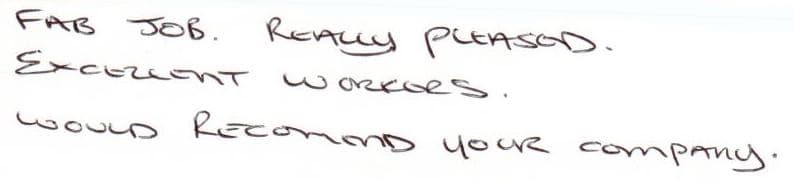 FAB JOB. REALLY PLEASED.
EXCELLENT WORKERS.
WOULD RECOMEND YOUR COMPANY.